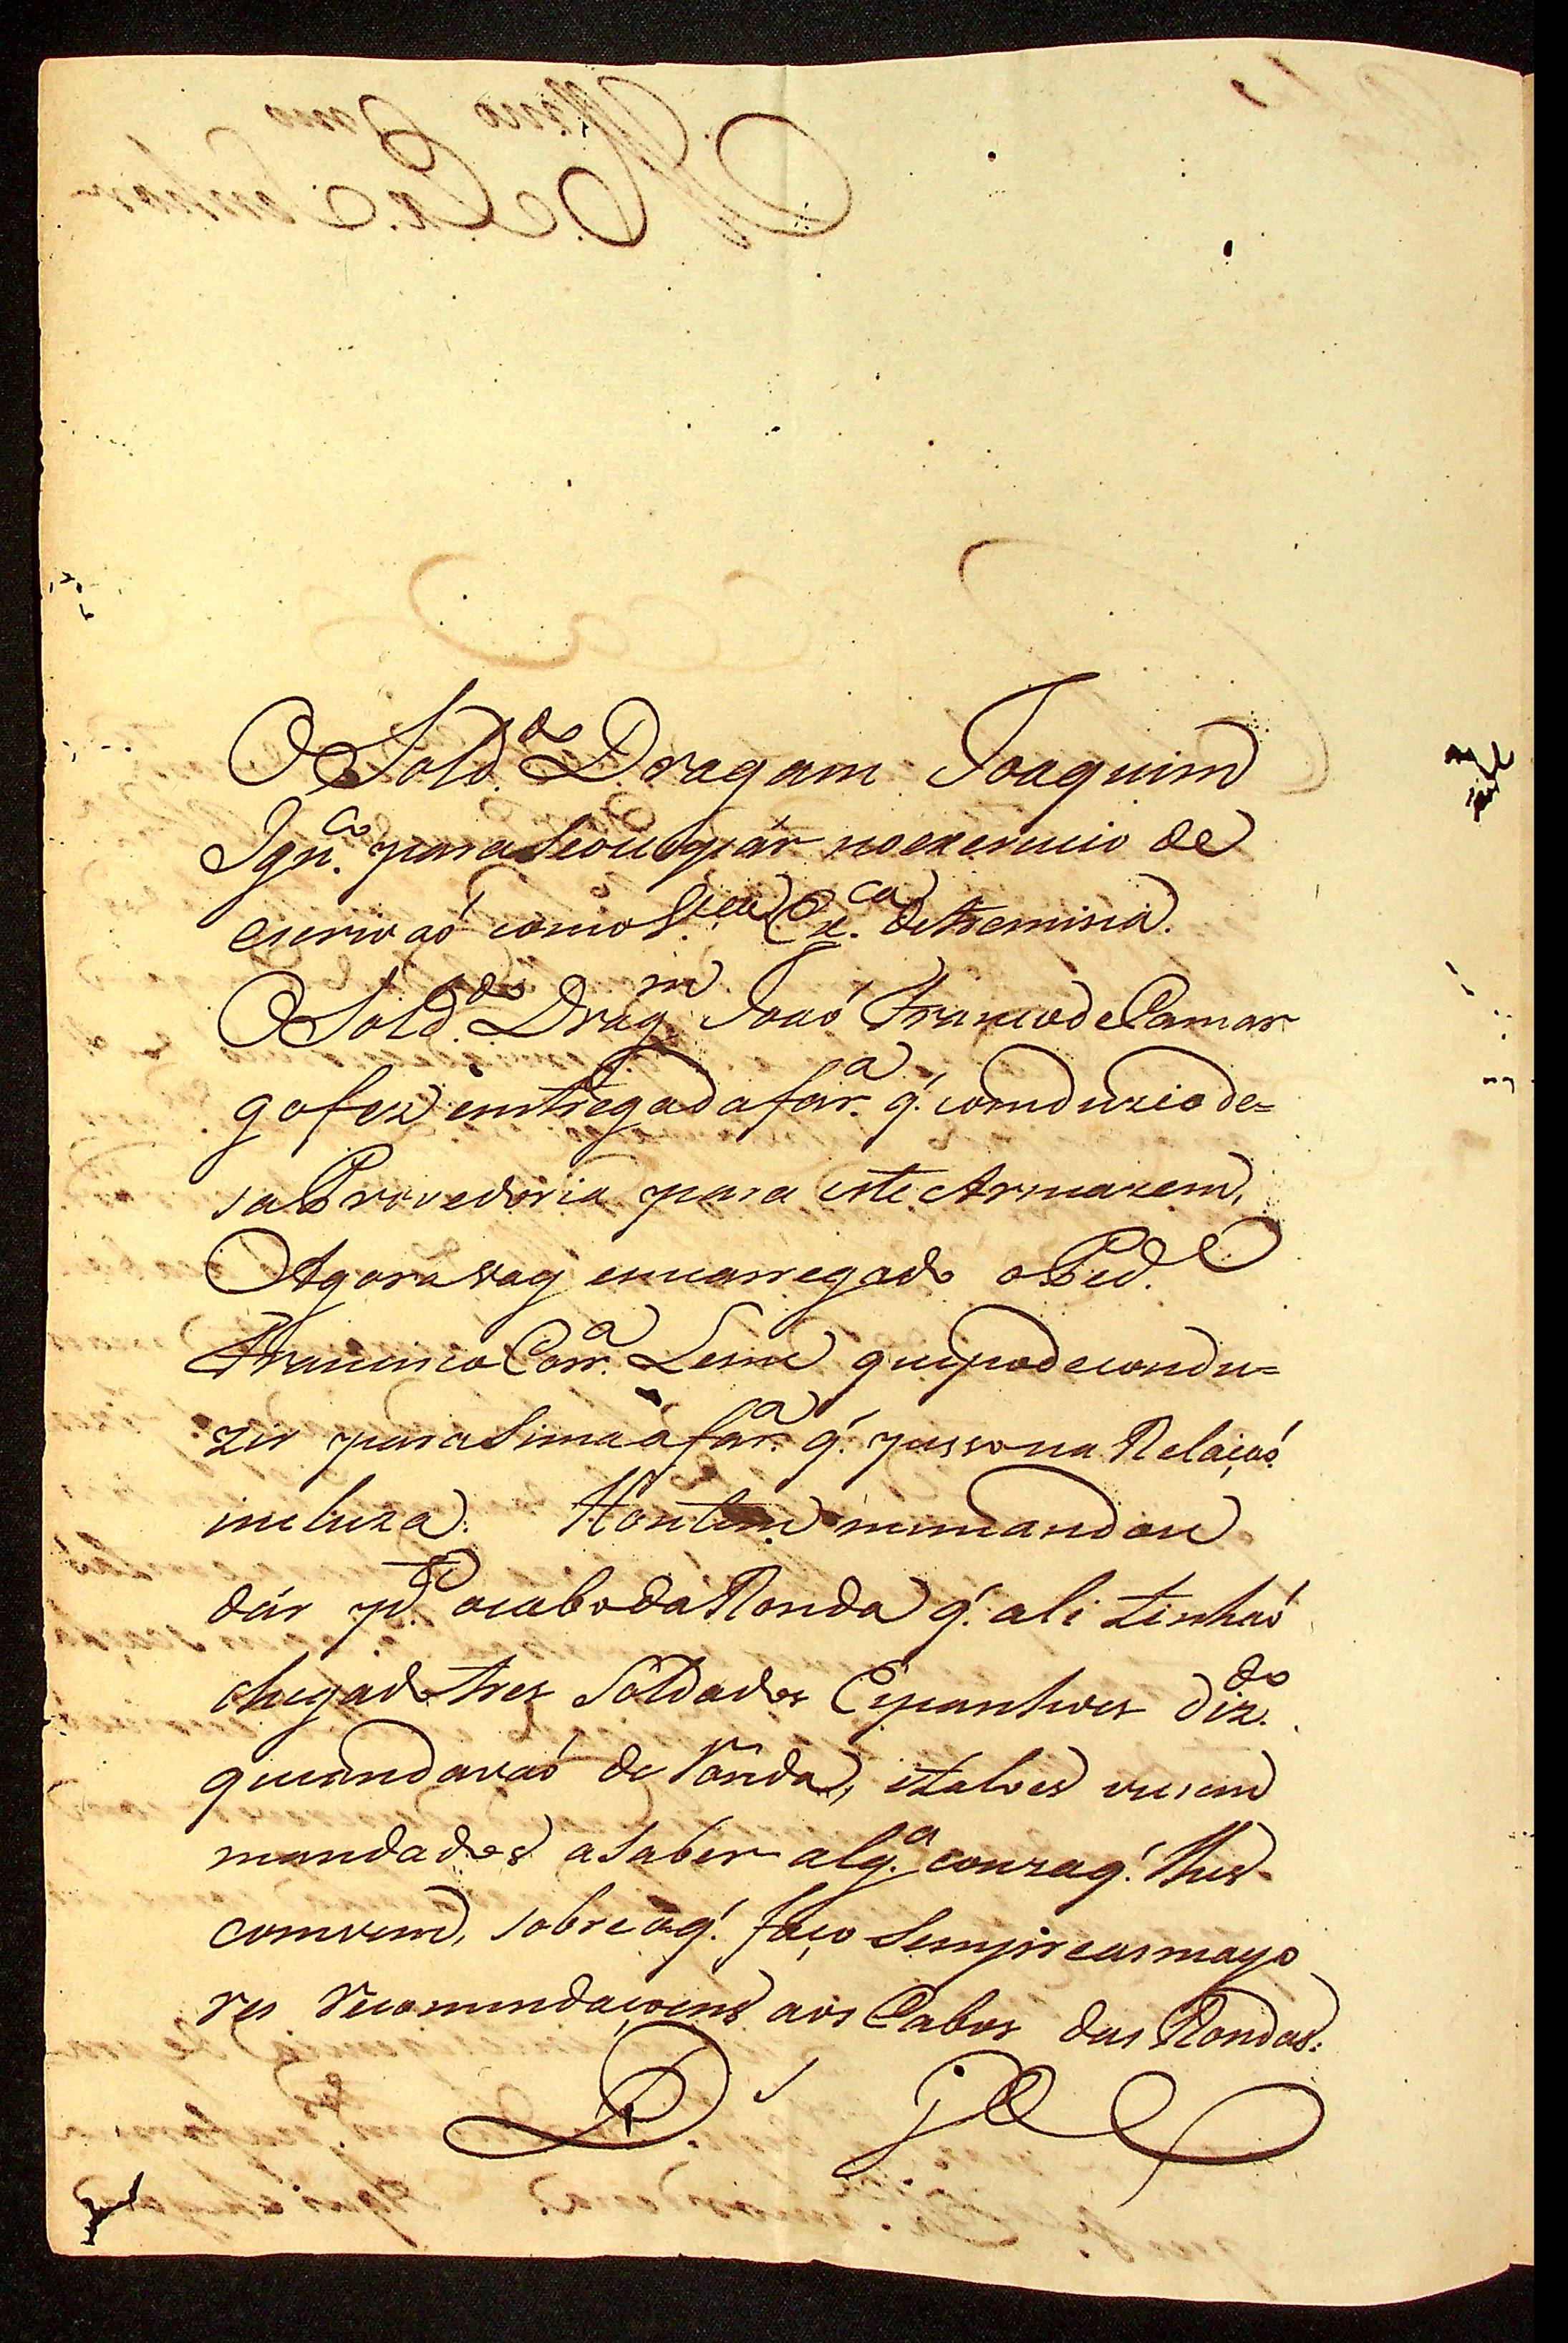 O Sold.do Dragam Joaquim
Ign.co para se ocupár no exercicio de
escrivaó como S. Ex.ca detremina.
O Sold.do Drag.m Joaó Franco de Camar
go fez emtrega da far.a q'. comduzio de=
sa Provedoria para este Armazem,
Agora vay emcarregado o Ped.e
Francisco Corr.a Leme que pode condu=
zir para sima a far.a q'. passo na Relaçaó
incluza. Hontem me mandou
dár p.te o cabo da Ronda q'. ali tinhaó
chegado tres Soldados Espanhoes diz.do
que andavaó de Ronda, e talves viesem
mandados a saber alg.a couza q'. lhes
comvem, sobre o q'. faço sempre as mayo
res recomendaçoens aos Cabos das Rondas.
D's